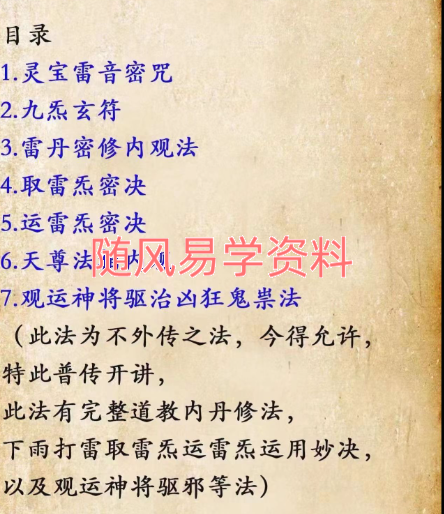 目录
1.灵宝雷音密咒
2.九炁玄符
3.雷丹密修内观法
4.取雷炁密决
5.运雷炁密决
6.天尊法
随风易学资料
7.观运神将驱治凶狂鬼祟法
（此法为不外传之法，今得允许，
特此普传开讲，
此法有完整道教内丹修法，
下雨打雷取雷炁运雷炁运用妙决，
以及观运神将驱邪等法）